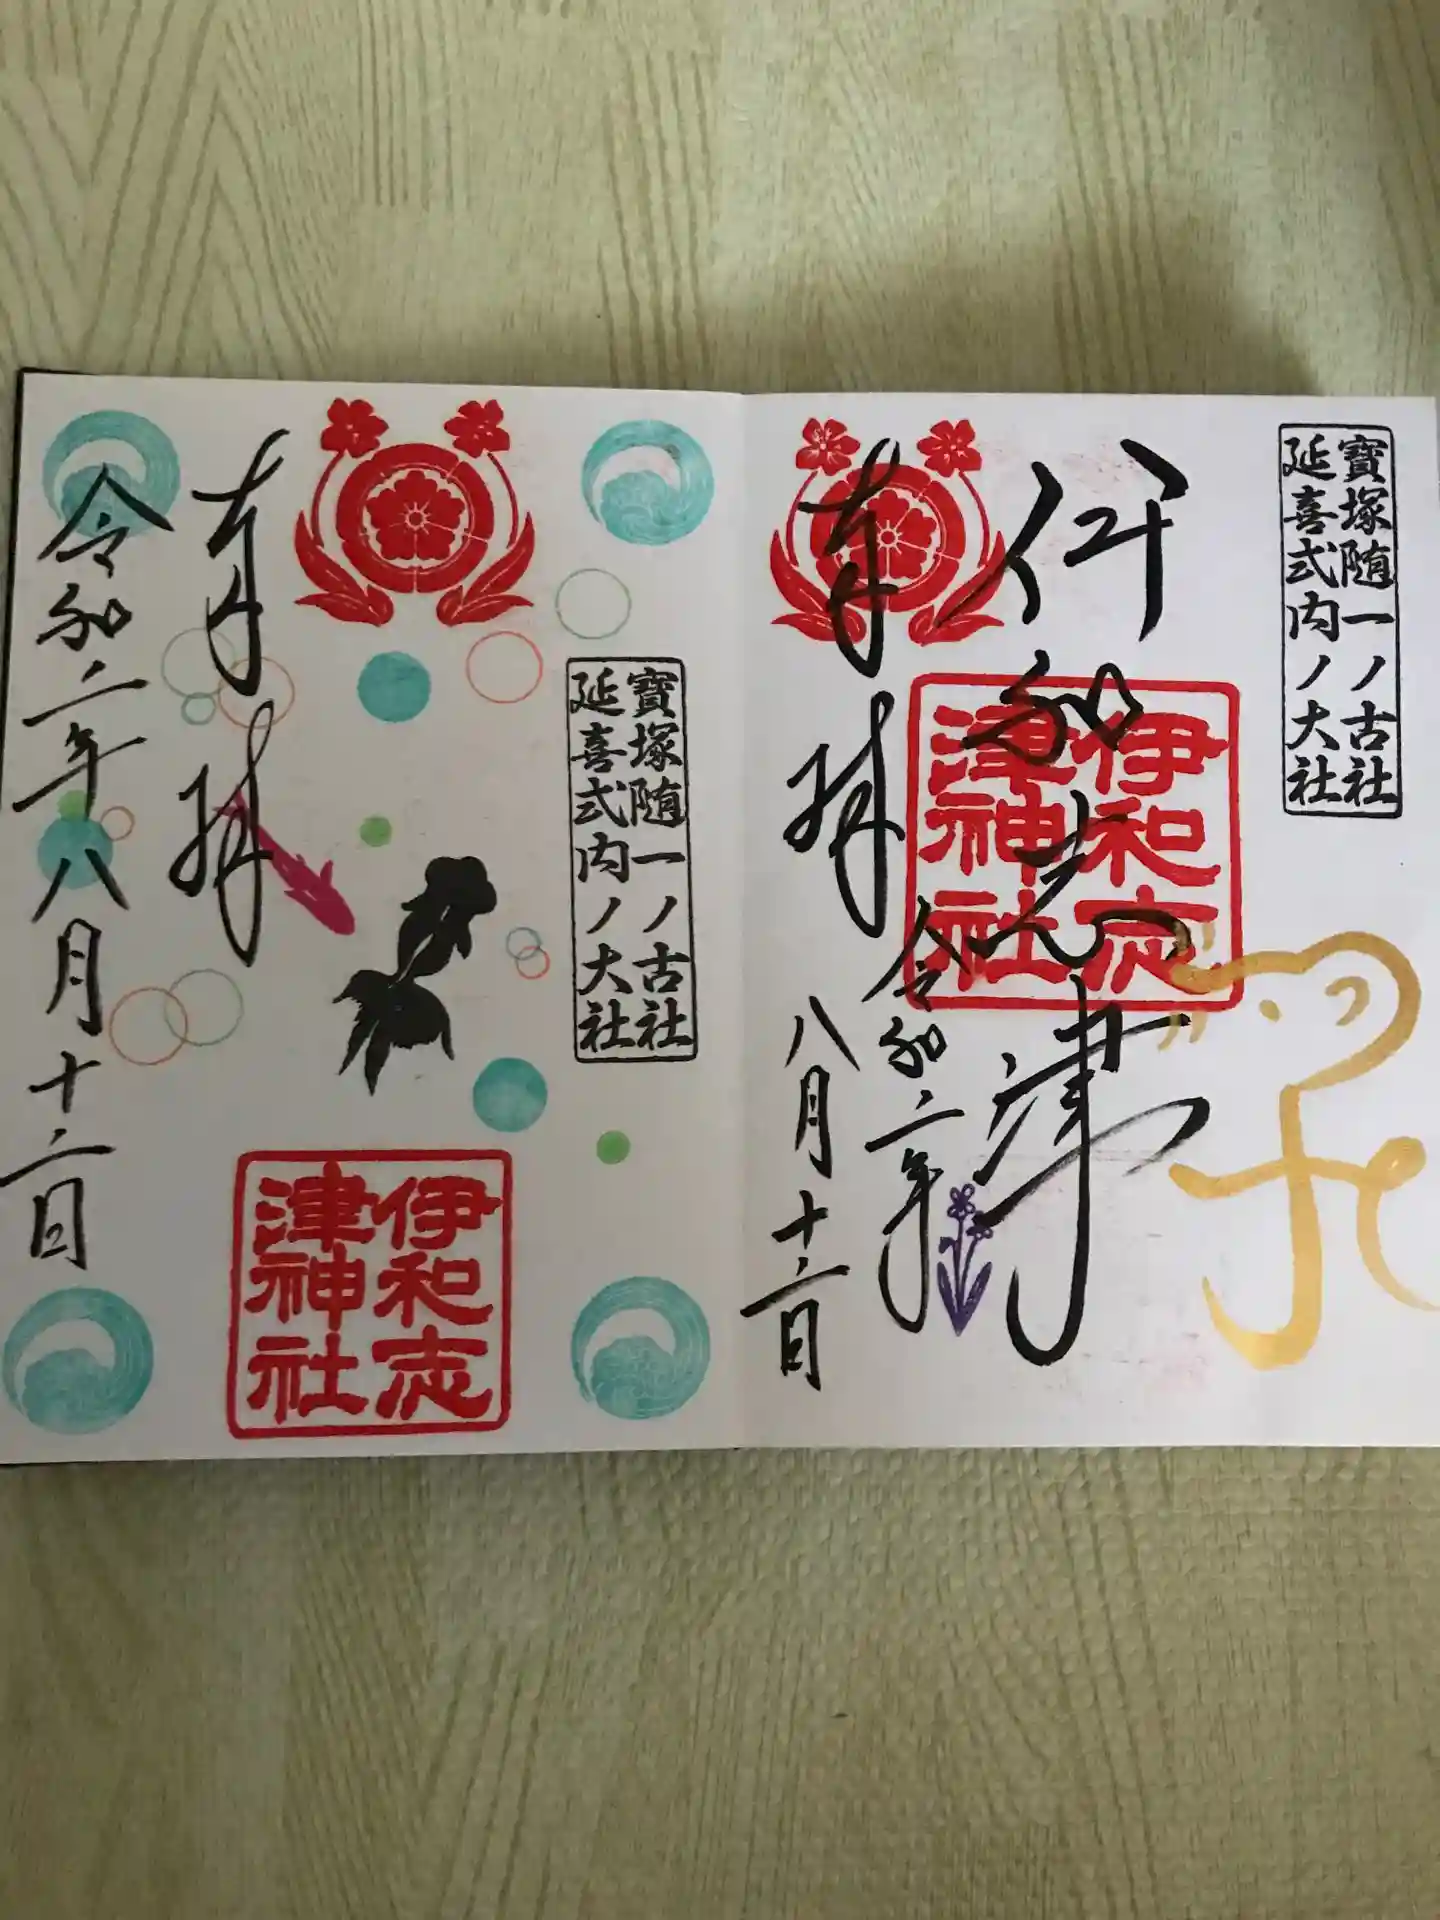 寶塚随一ノ古社
延喜式内ノ大社
伊和志津
伊和志
津神社
奉拝
令和二年
八月十二日
寶塚随一ノ古社
延喜式内ノ大社
伊和志
津神社
奉拝
令和二年八月十二日